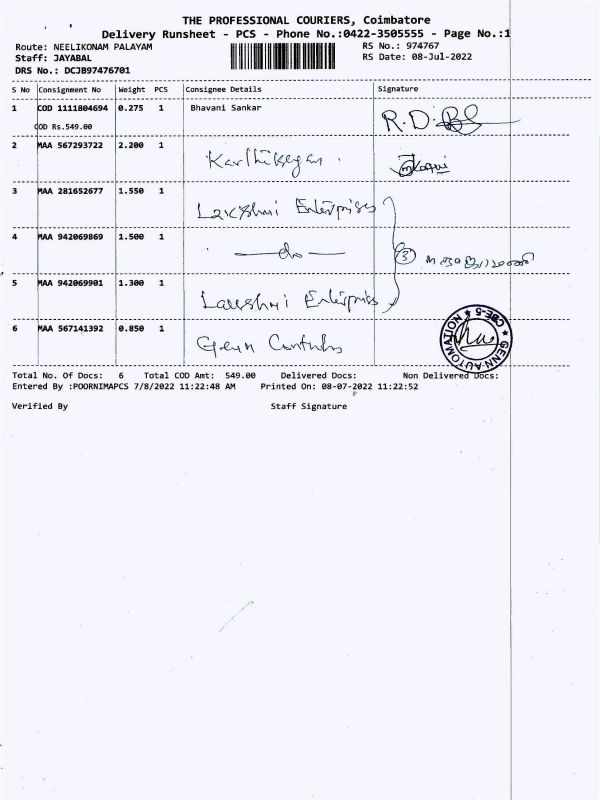 THE PROFESSIONAL COURIERS, Coimbatore
Delivery Runsheet - PCS - Phone No.:0422-3505555 - Page No.:1
Route: NEELIKONAM PALAYAM
RS No.: 974767
Staff: JAYABAL
RS Date: 08-Jul-2022
DRS No.: DCJB97476701
S No Consignment No Weight PCS Consignee Details Signature
1 COD 1111804694 0.275 1 Bhavani Sankar R.D.
COD Rs.549.00
2 MAA 567293722 2.200 1 Karthikeyan.
3 MAA 281652677 1.550 1 Lakshmi Enterprises
4 MAA 942069869 1.500 1 —do— 3
5 MAA 942069901 1.300 1 Lakshmi Enterprises
6 MAA 567141392 0.850 1 Genn Controls
GENN AUTOMATION ★ CBE-5 ★
Total No. Of Docs: 6 Total COD Amt: 549.00 Delivered Docs: Non Delivered Docs:
Entered By :POORNIMAPCS 7/8/2022 11:22:48 AM Printed On: 08-07-2022 11:22:52
Verified By Staff Signature